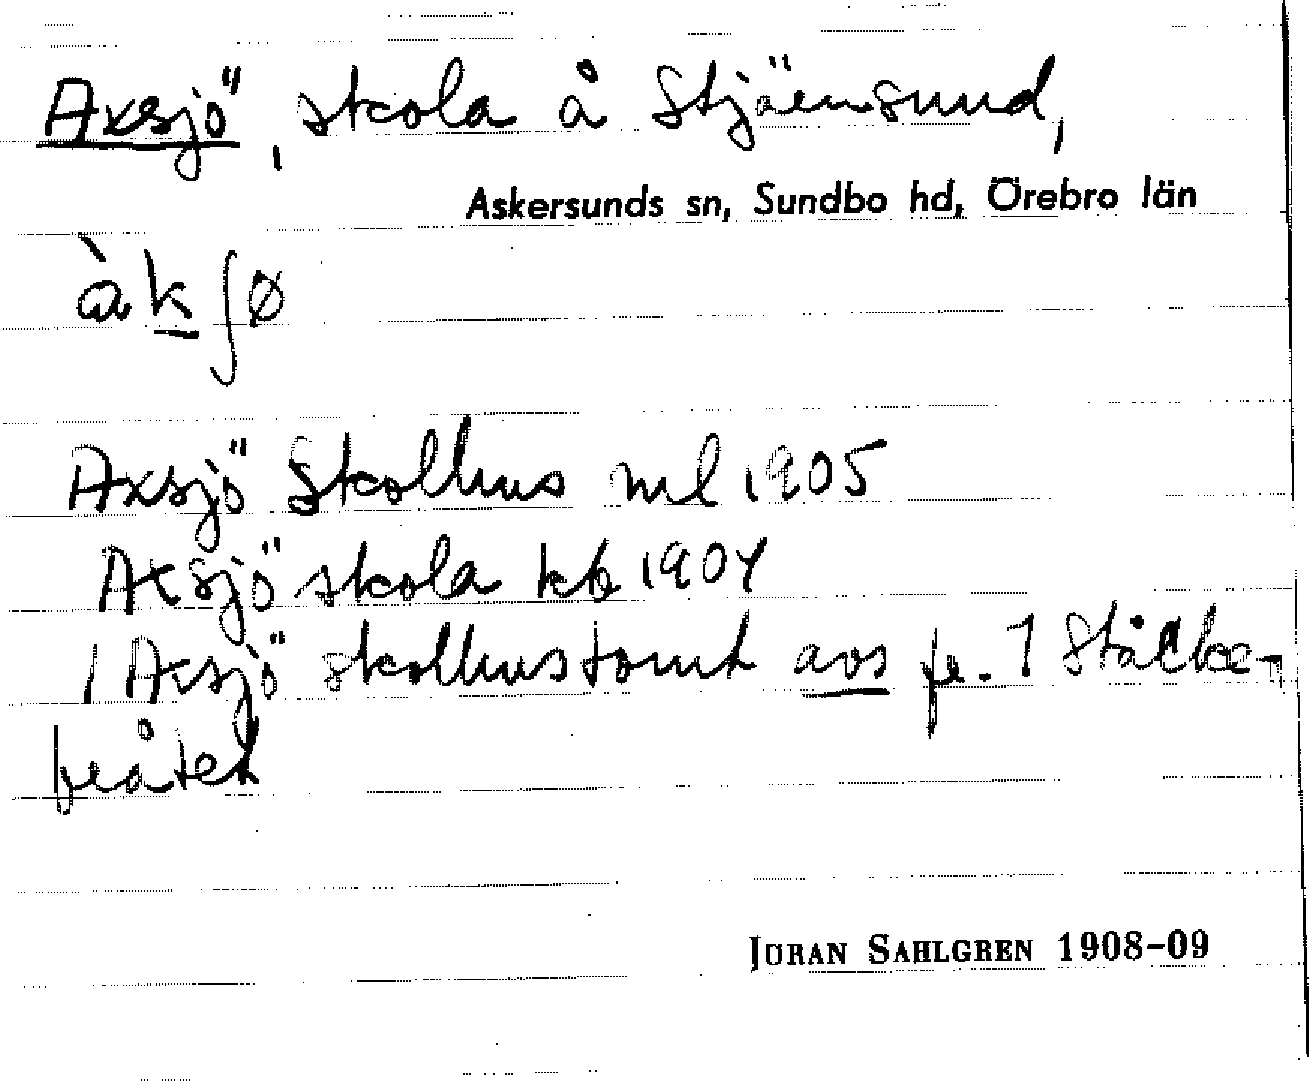 Axsjö, skola å Stjärnsund,
Askersunds sn, Sundbo hd, Örebro län
àk∫ø
Axsjö Skolhus ml 1905
Axsjö skola kb 1904
1 Axsjö skolhustomt avs fr. 1 Ståcke-
bråtet
JÖRAN SAHLGREN 1908-09